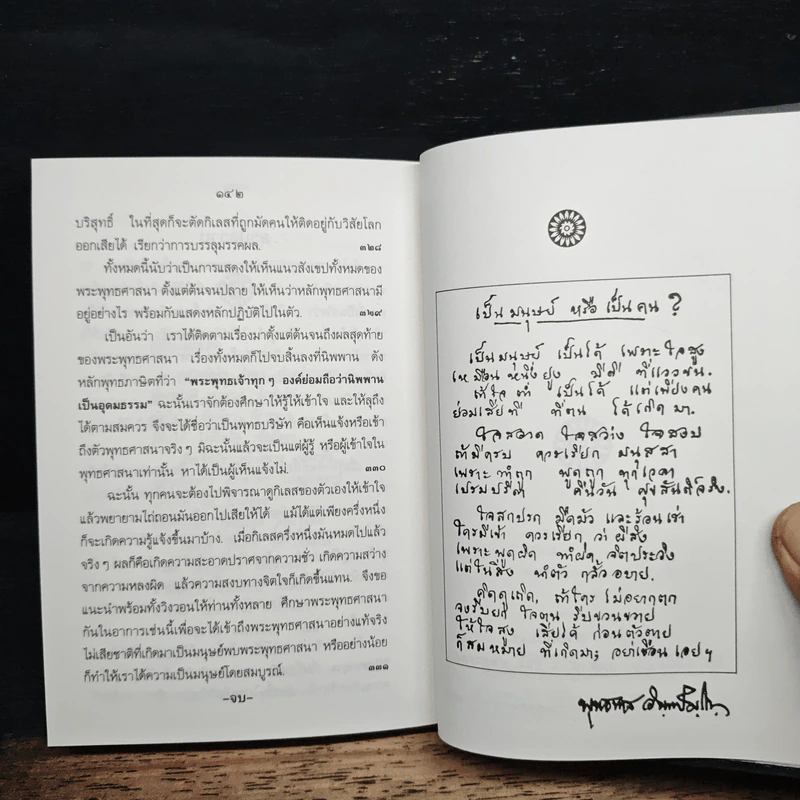 ๑๔๒
บริสุทธิ์ ในที่สุดก็จะตัดกิเลสที่ผูกมัดคนให้ติดอยู่กับวิสัยโลก
ออกเสียได้ เรียกว่าการบรรลุมรรคผล. ๓๒๘
ทั้งหมดนี้นับว่าเป็นการแสดงให้เห็นแนวสังเขปทั้งหมดของ
พระพุทธศาสนา ตั้งแต่ต้นจนปลาย ให้เห็นว่าหลักพุทธศาสนามี
อยู่อย่างไร พร้อมกับแสดงหลักปฏิบัติไปในตัว. ๓๒๙
เป็นอันว่า เราได้ติดตามเรื่องมาตั้งแต่ต้นจนถึงผลสุดท้าย
ของพระพุทธศาสนา เรื่องทั้งหมดก็ไปจบสิ้นลงที่นิพพาน ดัง
หลักพุทธภาษิตที่ว่า “พระพุทธเจ้าทุกๆ องค์ย่อมถือว่านิพพาน
เป็นอุดมธรรม” ฉะนั้นเราจักต้องศึกษาให้รู้ให้เข้าใจ และให้ลุถึง
ได้ตามสมควร จึงจะได้ชื่อว่าเป็นพุทธบริษัท คือเห็นแจ้งหรือเข้า
ถึงตัวพุทธศาสนาจริงๆ มิฉะนั้นแล้วจะเป็นแต่ผู้รู้ หรือผู้เข้าใจใน
พุทธศาสนาเท่านั้น หาได้เป็นผู้เห็นแจ้งไม่. ๓๓๐
ฉะนั้น ทุกคนจะต้องไปพิจารณาดูกิเลสของตัวเองให้เข้าใจ
แล้วพยายามไถ่ถอนมันออกไปเสียให้ได้ แม้ได้แต่เพียงครึ่งหนึ่ง
ก็จะเกิดความรู้แจ้งขึ้นมาบ้าง. เมื่อกิเลสครึ่งหนึ่งมันหมดไปแล้ว
จริงๆ ผลก็คือเกิดความสะอาดปราศจากความชั่ว เกิดความสว่าง
จากความหลงผิด แล้วความสงบทางจิตใจก็เกิดขึ้นแทน. จึงขอ
แนะนำพร้อมทั้งวิงวอนให้ท่านทั้งหลาย ศึกษาพระพุทธศาสนา
กันในอาการเช่นนี้เพื่อจะได้เข้าถึงพระพุทธศาสนาอย่างแท้จริง
ไม่เสียชาติที่เกิดมาเป็นมนุษย์พบพระพุทธศาสนา หรืออย่างน้อย
ก็ทำให้เราได้ความเป็นมนุษย์โดยสมบูรณ์. ๓๓๑
–จบ–
เป็นมนุษย์ หรือ เป็นคน ?
เป็นมนุษย์ เป็นได้ เพราะใจสูง
เหมือนหนึ่งยูง มีดี ที่แววขน.
ถ้าใจต่ำ เป็นได้ แต่เพียงคน
ย่อมเสียที ที่ตน ได้เกิดมา.
ใจสอาด ใจสว่าง ใจสงบ
ถ้ามีครบ ควรเรียก มนุสสา
เพราะทำถูก พูดถูก ทุกเวลา
เปรมปรีดา คืนวัน ศุขสันติ์จริง.
ใจสกปรก มืดมัว และร้อนเร่า
ใครมีเข้า ควรเรียก ว่าผีสิง
เพราะพูดผิด ทำผิด จิตประวิง
แต่ในสิ่ง ทำตัว กลั้วอบาย.
คิดดูเถิด, ถ้าใคร ไม่อยากตก
จงรีบยก ใจตน รีบขวนขวาย
ให้ใจสูง เสียได้ ก่อนตัวตาย
ก็สมหมาย ที่เกิดมา; อย่าเชือนเอยฯ
พุทธทาส อินทปัญโญ